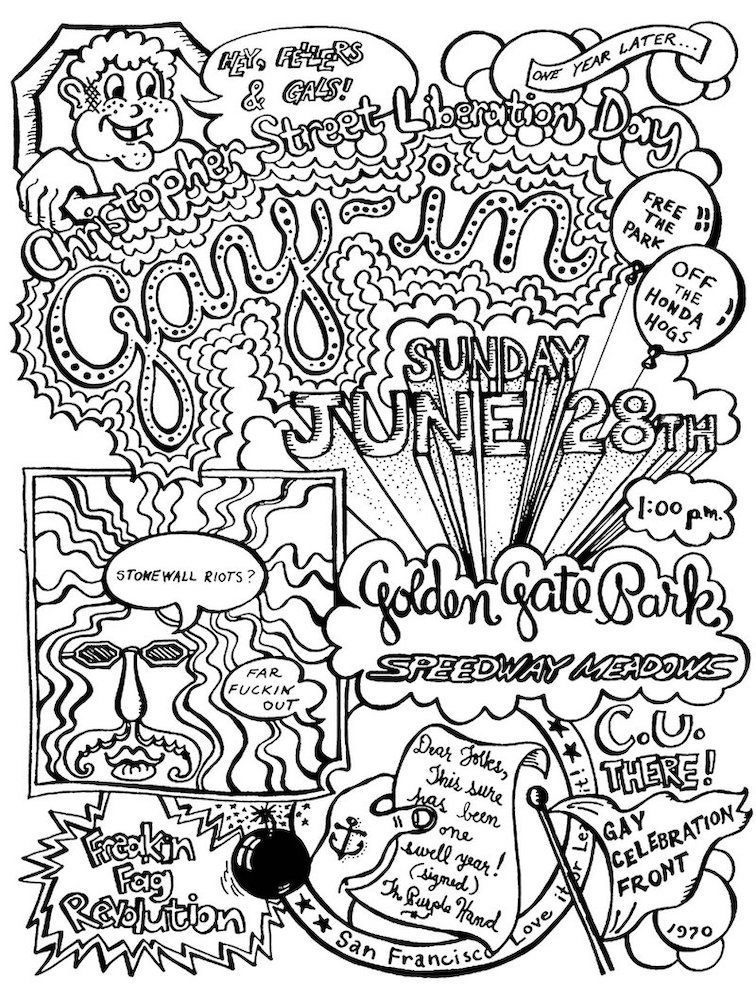 HEY, FELLERS
& GALS!
ONE YEAR LATER...
Christopher Street Liberation Day
gay-in
FREE
THE
PARK
!!
OFF
THE
HONDA
HOGS
SUNDAY
JUNE 28TH
1:00 p.m.
Golden Gate Park,
SPEEDWAY MEADOWS
STONEWALL RIOTS?
FAR
FUCKIN'
OUT
C.U.
THERE!
Dear Folks,
This sure
has been
one
swell year!
(signed)
The Purple Hand
GAY
CELEBRATION
FRONT
Freakin
Fag
Revolution
San Francisco Love it or Lea it!
1970